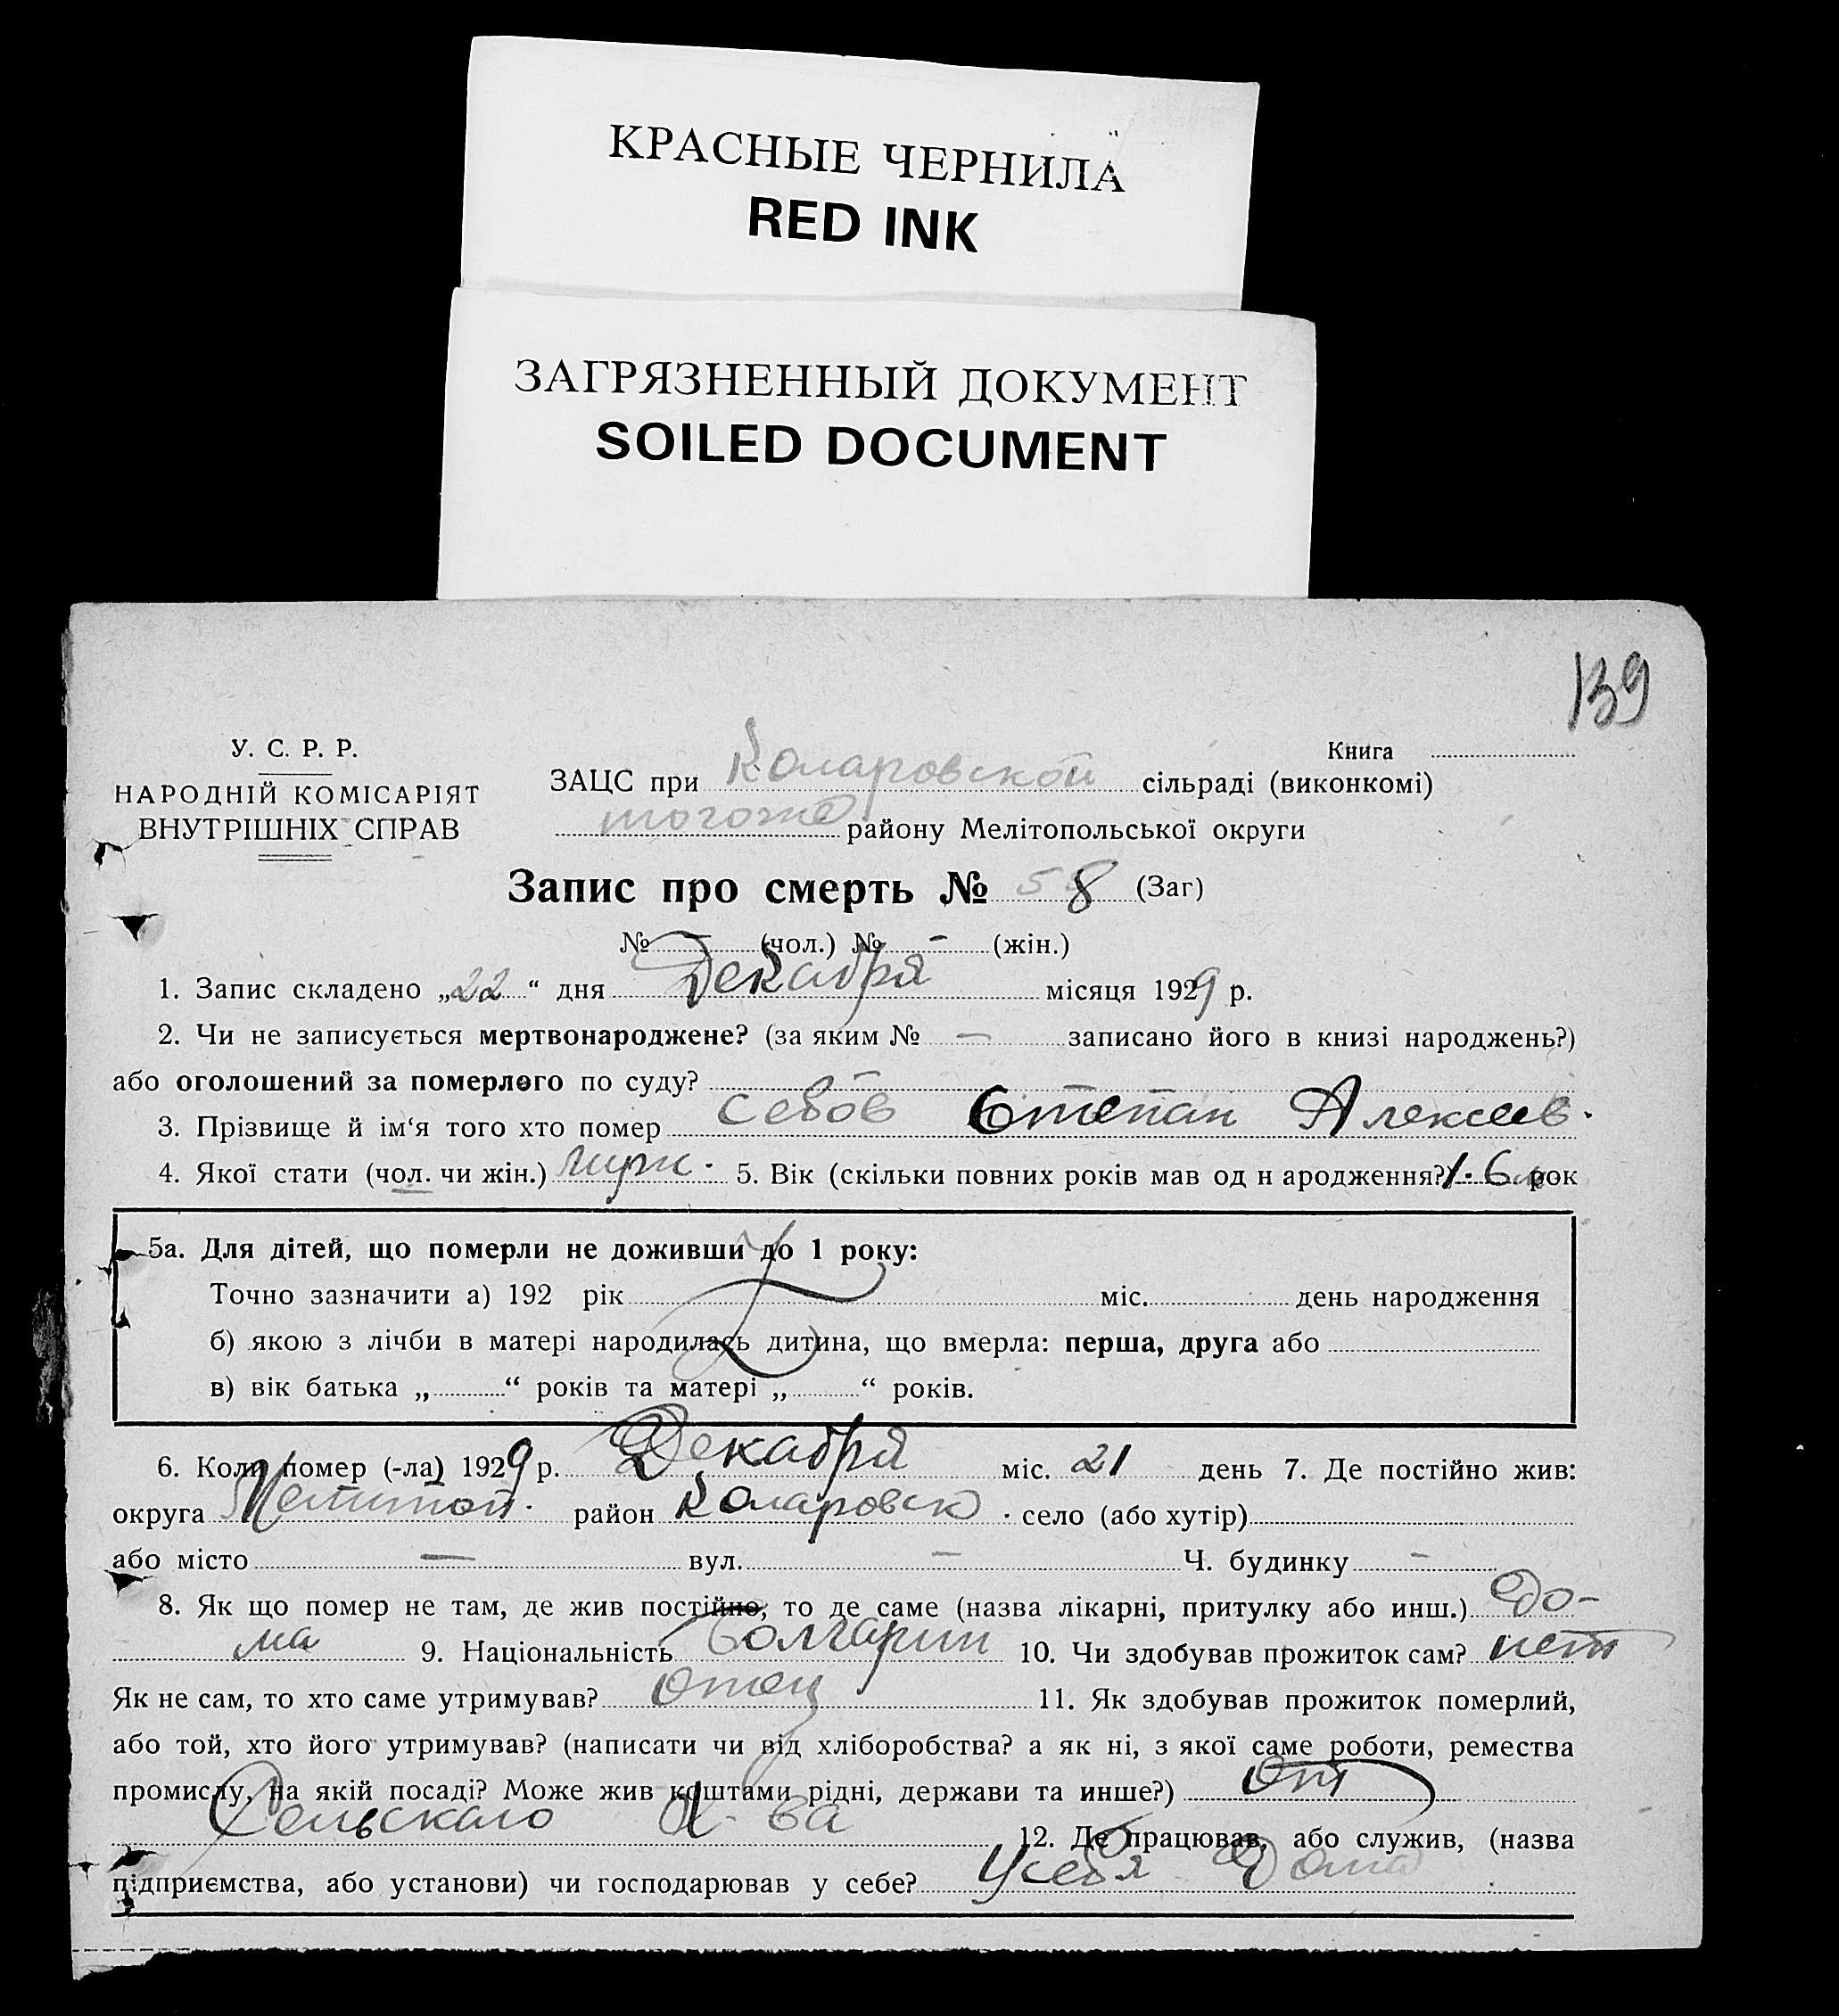 КРАСНЫЕ ЧЕРНИЛА
RED INK
ЗАГРЯЗНЕННЫЙ ДОКУМЕНТ
SOILED DOCUMENT
139
У. С. Р. Р.
НАРОДНІЙ КОМІСАРІЯТ
ВНУТРІШНІХ СПРАВ
Книга
ЗАЦС при Коларовской сільраді (виконкомі)
тогоже району Мелітопольської округи
Запис про смерть № 58 (Заг)
№ – (чол.) № – (жін.)
1. Запис складено „22“ дня Декабря місяця 1929 р.
2. Чи не записується мертвонароджене? (за яким № — записано його в книзі народжень?)
або оголошений за померлого по суду? —
3. Прізвище й ім‘я того хто помер Степан Алексеев.
4. Якої стати (чол. чи жін.) 5. Вік (скільки повних років мав од н ародження?) 1.6 рок
5а. Для дітей, що померли не доживши до 1 року:
Точно зазначити а) 192 рік міс. день народження
б) якою з лічби в матері народилась дитина, що вмерла: перша, друга або
в) вік батька „ “ років та матері „ “ років.
6. Коли помер (-ла) 1929 р. Декабря міс. 21 день 7. Де постійно жив:
округа Мелитоп. район Коларовск. село (або хутір)
або місто — вул. – Ч. будинку –
8. Як що помер не там, де жив постійно, то де саме (назва лікарні, притулку або инш.) До-
ма 9. Національність Болгарин 10. Чи здобував прожиток сам? нет
Як не сам, то хто саме утримував? Отец 11. Як здобував прожиток померлий,
або той, хто його утримував? (написати чи від хліборобства? а як ні, з якої саме роботи, ремества
промислу, на якій посаді? Може жив коштами рідні, держави та инше?) От
Сельскаго Х-ва 12. Де працював, або служив, (назва
підприємства, або установи) чи господарював у себе? У себя Дома